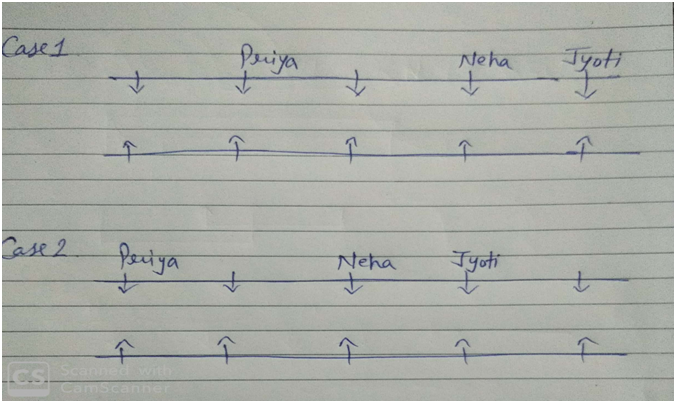 Case 1
Priya Neha Jyoti
Case 2
Priya Neha Jyoti
CS Scanned with
CamScanner